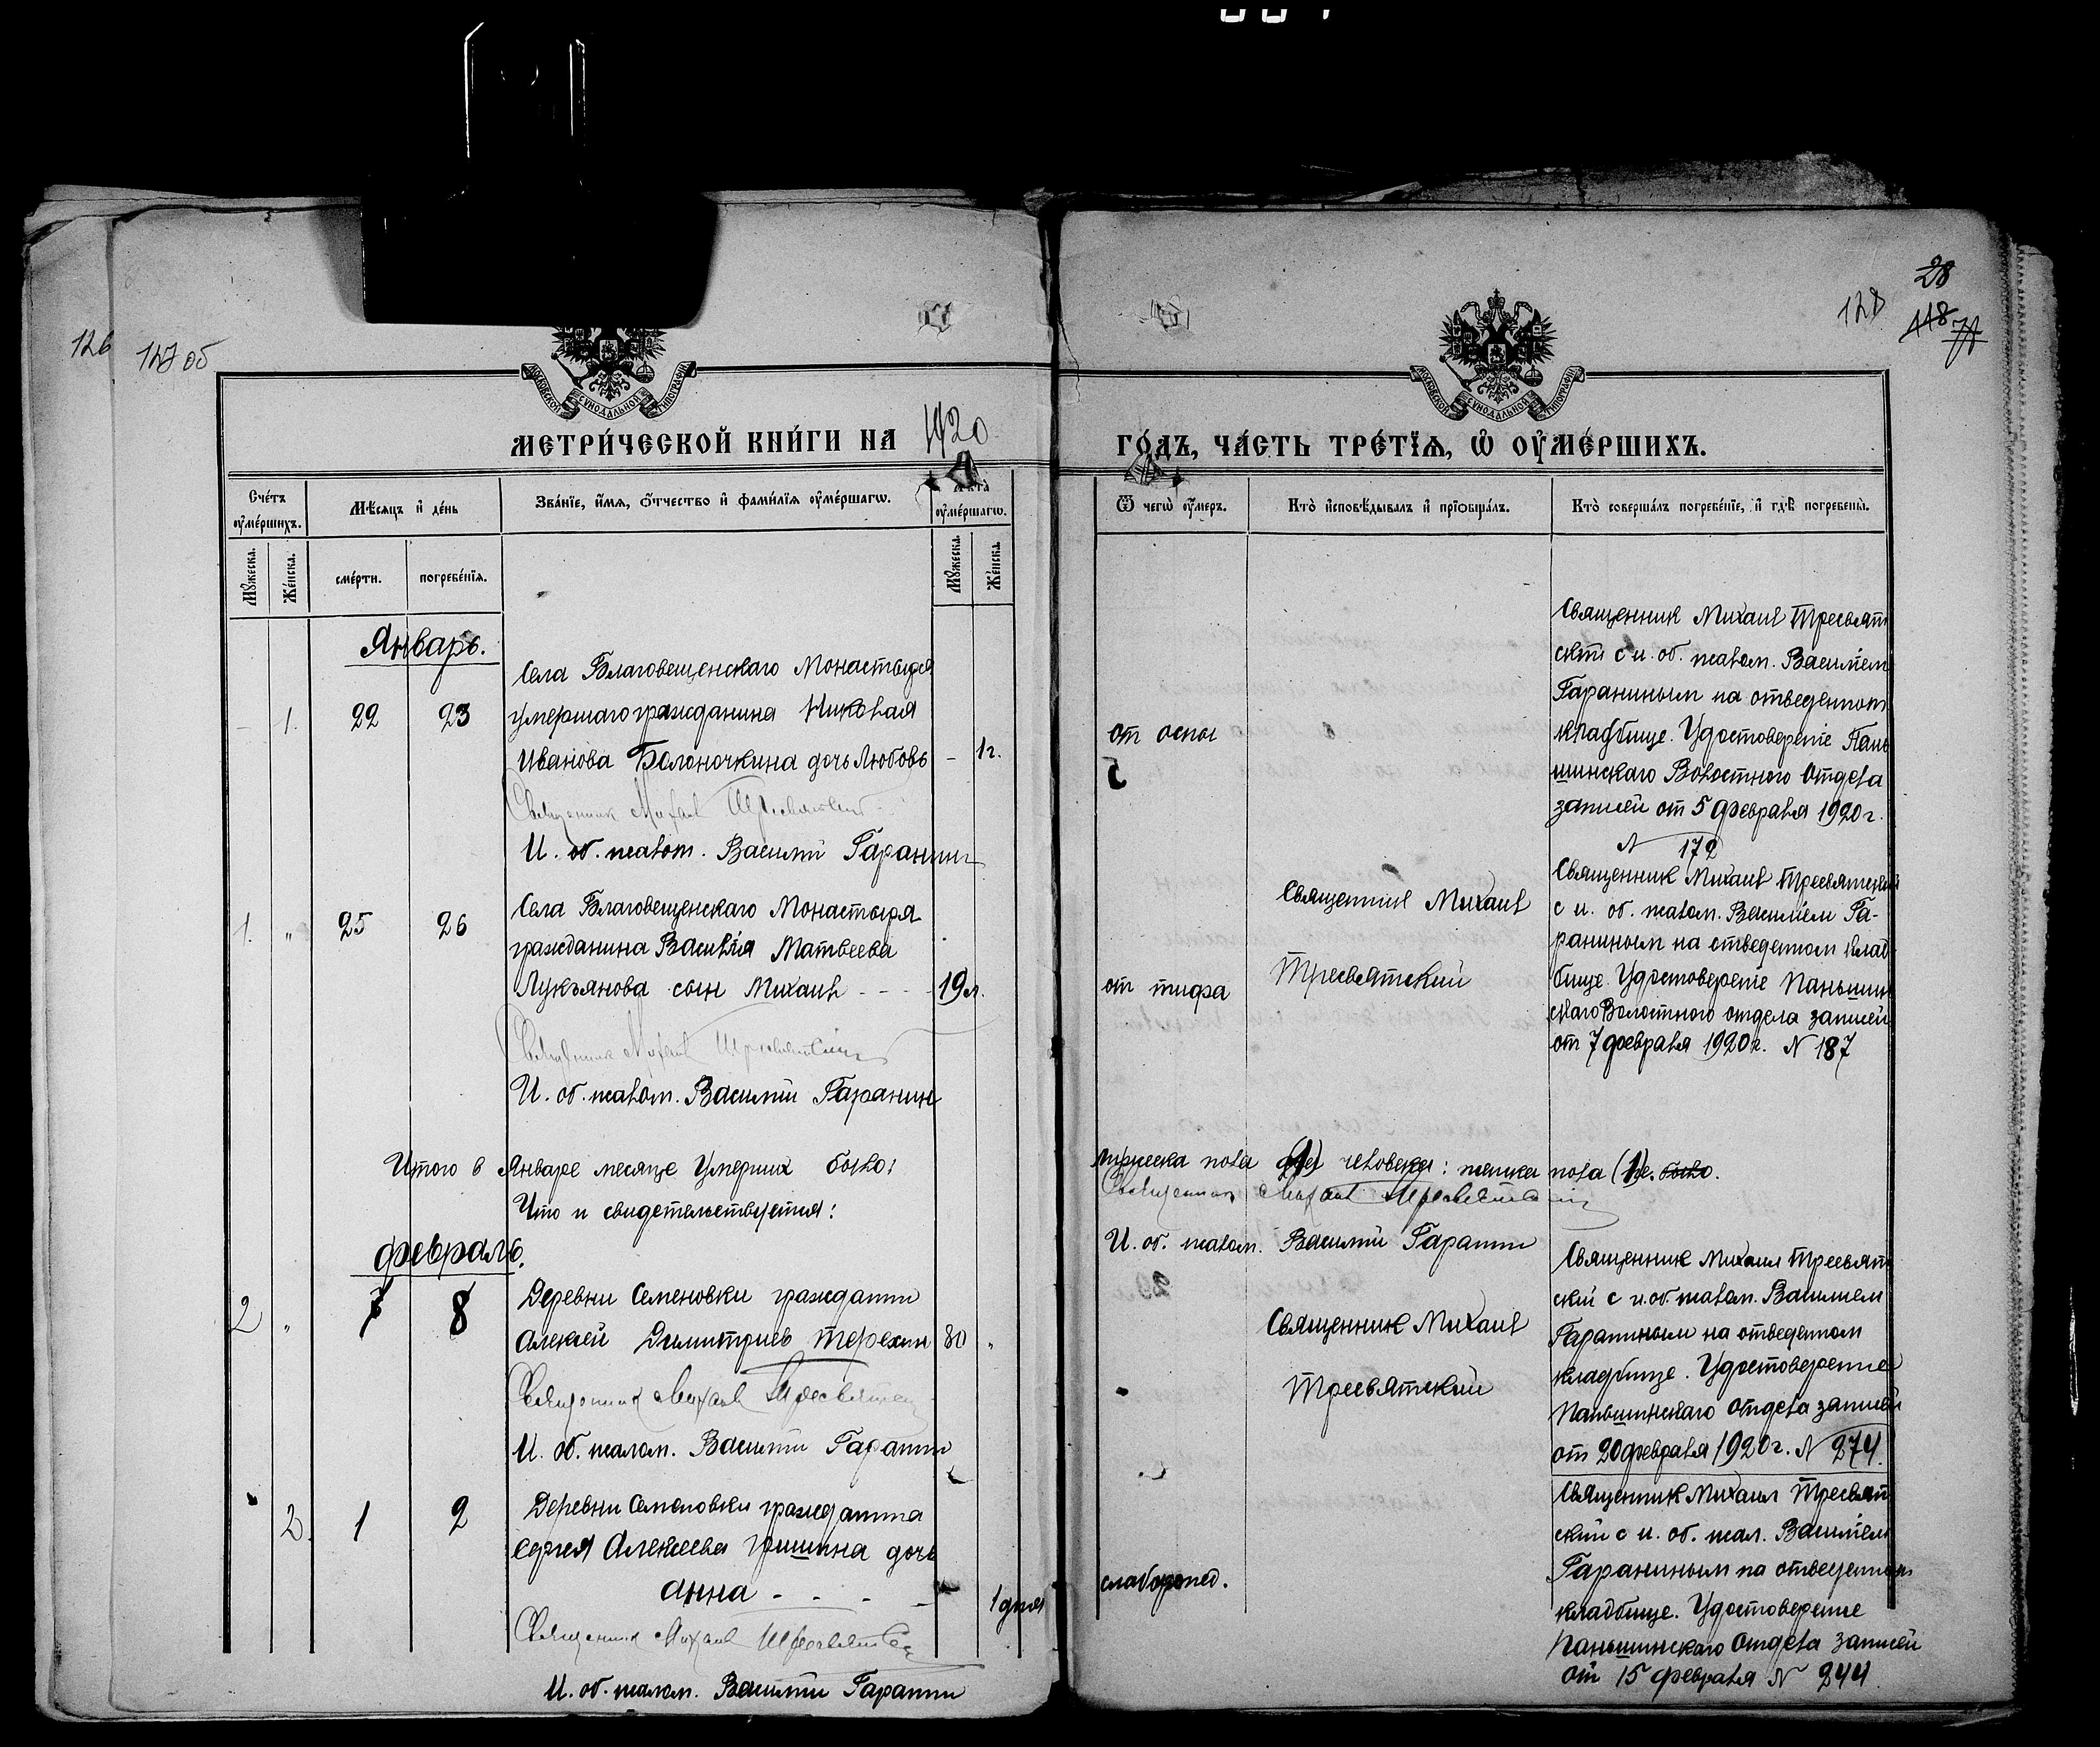 126
127 об
128
28
118
71
МОСКОВСКОЙ СУНОДАЛЬНОЙ ТИПОГРАФІИ
МОСКОВСКОЙ СУНОДАЛЬНОЙ ТИПОГРАФІИ
МЕТРИ́ЧЕСКОЙ КНИ́ГИ НА 1920
ГО́ДЪ, ЧА́СТЬ ТРЕ́ТЇѦ, Ѡ҆ ОУ҆МЕ́РШИХЪ.
Сче́тъ оу҆ме́ршихъ.
Мѣ́сяцъ и҆ де́нь
Зва́нїе, и҆́мѧ, ѻ҆́тчество и҆ фами́лїѧ оу҆ме́ршагѡ.
Лѣ́та̀ оу҆ме́ршагѡ.
Мꙋ́жеска.
Же́нска.
сме́рти.
погребе́нїѧ.
Мꙋ́жеска.
Же́нска.
Ѿ чегѡ̀ оу҆́меръ.
Кто̀ и҆сповѣ́дывалъ и҆ прїѡбща́лъ.
Кто̀ соверша́лъ погребе́нїе, и҆ гдѣ̀ погребены̀.
Январь.
Села Благовещенскаго Монастыря
- 1. 22 23 умершаго гражданина Николая
Иванова Болоночкина дочь Любовь - 1 г.
Священник Михаил Тресвятский
И. об. псалом. Василий Гаранин
от оспы
Священник Михаил Тресвят
ский с и. об. псалом. Василием
Гараниным на отведенном
кладбище. Удостоверение Пань
шинскаго Волостного Отдела
записей от 5 февраля 1920 г.
N 172
Села Благовещенскаго Монастыря
1. " 25 26 гражданина Василия Матвеева
Лукъянова сын Михаил - - - 19 л.
Священник Михаил Тресвятский
И. об. псалом. Василий Гаранин
от тифа
Священник Михаил
Тресвятский
Священник Михаил Тресвятский
с и. об. псалом. Василием Га-
раниным на отведенном клад
бище. Удостоверение Паньшин
скаго Волостного отдела записей
от 7 февраля 1920 г. N 187
Итого в Январе месяце Умерших было: мужеска пола (1) человек: женска пола (1) че. было.
Что и свидетельствуется:
Священник Михаил Тресвятский
И. об. псалом. Василий Гаранин
февраль.
2 " 7 8 Деревни Семеновки гражданин
Алексей Димитриев Терехин 80 "
Священник Михаил Тресвятский
И. об. псалом. Василий Гаранин
Священник Михаил
Тресвятский
Священник Михаил Тресвят
ский с и. об. псалом. Василием
Гараниным на отведенном
кладбище. Удостоверение
Паньшинскаго Отдела записей
от 20 февраля 1920 г. N 274
" 2. 1 2 Деревни Семеновки гражданина
Сергея Алексеева Гришина дочь
Анна - - - - 1 дня
Священник Михаил Тресвятский
И. об. псалом. Василий Гаранин
слаборожд.
Священник Михаил Тресвят
ский с и. об. псал. Василием
Гараниным на отведенном
кладбище. Удостоверение
Паньшинскаго Отдела записей
от 15 февраля N 244